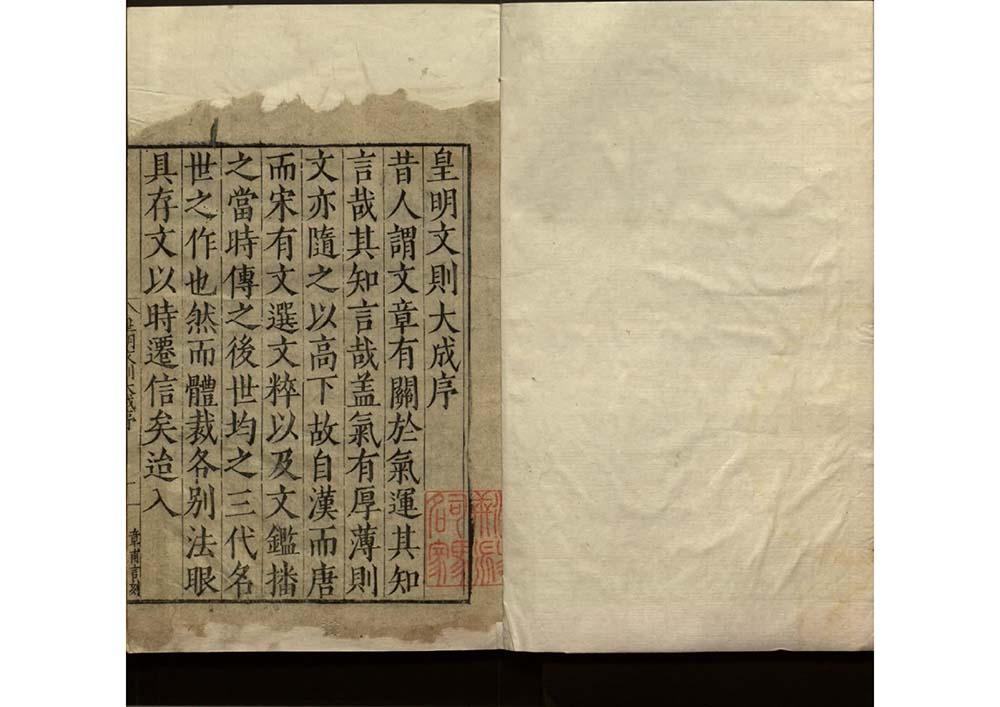 皇明文則大成序
昔人謂文章有關於氣運其知
言哉其知言哉盖氣有厚薄則
文亦隨之以高下故自漢而唐
而宋有文選文粹以及文鑑播
之當時傳之後世均之三代名
世之作也然而體裁各别法眼
具存文以時遷信矣迨入
皇明文則大成序
一
章甫言刻